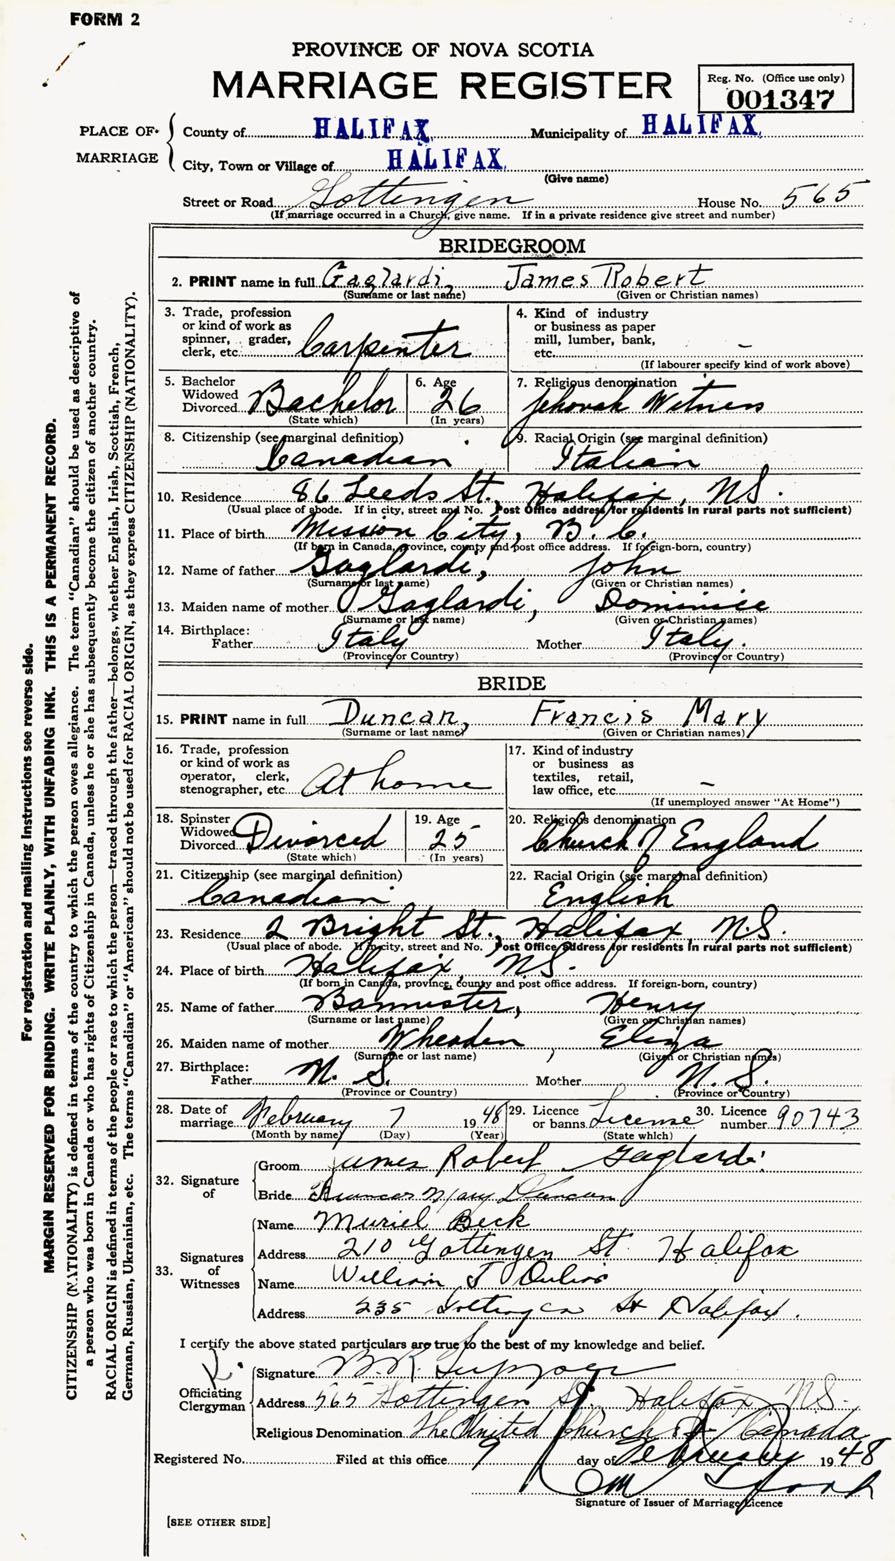 FORM 2
PROVINCE OF NOVA SCOTIA
MARRIAGE REGISTER
Reg. No. (Office use only)
001347
PLACE OF MARRIAGE
County of HALIFAX Municipality of HALIFAX
City, Town or Village of HALIFAX
(Give name)
Street or Road Gottingen House No. 565
(If marriage occurred in a Church, give name. If in a private residence give street and number)
BRIDEGROOM
2. PRINT name in full Gaglardi, James Robert
(Surname or last name) (Given or Christian names)
3. Trade, profession
or kind of work as
spinner, grader,
clerk, etc. Carpenter
4. Kind of industry
or business as paper
mill, lumber, bank,
etc. –
(If labourer specify kind of work above)
5. Bachelor
Widowed
Divorced Bachelor
(State which)
6. Age
26
(In years)
7. Religious denomination
Jehovah Witness
8. Citizenship (see marginal definition)
Canadian
9. Racial Origin (see marginal definition)
Italian
10. Residence 86 Leeds St., Halifax, N.S.
(Usual place of abode. If in city, street and No. Post Office address for residents in rural parts not sufficient)
11. Place of birth Mission City, B.C.
(If born in Canada, province, county and post office address. If foreign-born, country)
12. Name of father Gaglardi, John
(Surname or last name) (Given or Christian names)
13. Maiden name of mother Gaglardi, Dominica
(Surname or last name) (Given or Christian names)
14. Birthplace:
Father Italy Mother Italy.
(Province or Country) (Province or Country)
BRIDE
15. PRINT name in full Duncan, Francis Mary
(Surname or last name) (Given or Christian names)
16. Trade, profession
or kind of work as
operator, clerk,
stenographer, etc. At home
17. Kind of industry
or business as
textiles, retail,
law office, etc. –
(If unemployed answer "At Home")
18. Spinster
Widowed
Divorced Divorced
(State which)
19. Age
25
(In years)
20. Religious denomination
Church of England
21. Citizenship (see marginal definition)
Canadian
22. Racial Origin (see marginal definition)
English
23. Residence 2 Bright St., Halifax, N.S.
(Usual place of abode. If in city, street and No. Post Office address for residents in rural parts not sufficient)
24. Place of birth Halifax, N.S.
(If born in Canada, province, county and post office address. If foreign-born, country)
25. Name of father Bannister, Henry
(Surname or last name) (Given or Christian names)
26. Maiden name of mother Wheadon, Eliza
(Surname or last name) (Given or Christian names)
27. Birthplace:
Father N.S. Mother N.S.
(Province or Country) (Province or Country)
28. Date of
marriage February 7 1948
(Month by name) (Day) (Year)
29. Licence
or banns License
(State which)
30. Licence
number 90743
32. Signature
of
Groom James Robert Gaglardi
Bride Frances Mary Duncan
33. Signatures
of
Witnesses
Name Muriel Beck
Address 210 Gottingen St. Halifax
Name William J
Address 235 Gottingen St Halifax.
I certify the above stated particulars are true to the best of my knowledge and belief.
Officiating
Clergyman
Signature B.R.
Address 565 Gottingen St. Halifax N.S.
Religious Denomination The United Church of Canada
Registered No. Filed at this office 9 day of February 1948
Signature of Issuer of Marriage Licence
[SEE OTHER SIDE]
For registration and mailing instructions see reverse side.
MARGIN RESERVED FOR BINDING. WRITE PLAINLY, WITH UNFADING INK. THIS IS A PERMANENT RECORD.
CITIZENSHIP (NATIONALITY) is defined in terms of the country to which the person owes allegiance. The term "Canadian" should be used as descriptive of
a person who was born in Canada or who has rights of Citizenship in Canada, unless he or she has subsequently become the citizen of another country.
RACIAL ORIGIN is defined in terms of the people or race to which the person—traced through the father—belongs, whether English, Irish, Scottish, French,
German, Russian, Ukrainian, etc. The terms "Canadian" or "American" should not be used for RACIAL ORIGIN, as they express CITIZENSHIP (NATIONALITY).